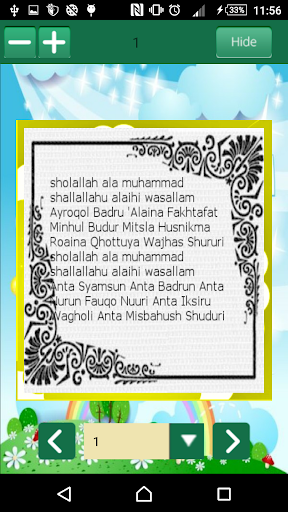 33% 11:56
1
Hide
sholallah ala muhammad
shallallahu alaihi wasallam
Ayroqol Badru 'Alaina Fakhtafat
Minhul Budur Mitsla Husnikma
Roaina Qhottuya Wajhas Shururi
sholallah ala muhammad
shallallahu alaihi wasallam
Anta Syamsun Anta Badrun Anta
Nurun Fauqo Nuuri Anta Iksiru
Wagholi Anta Misbahush Shuduri
1